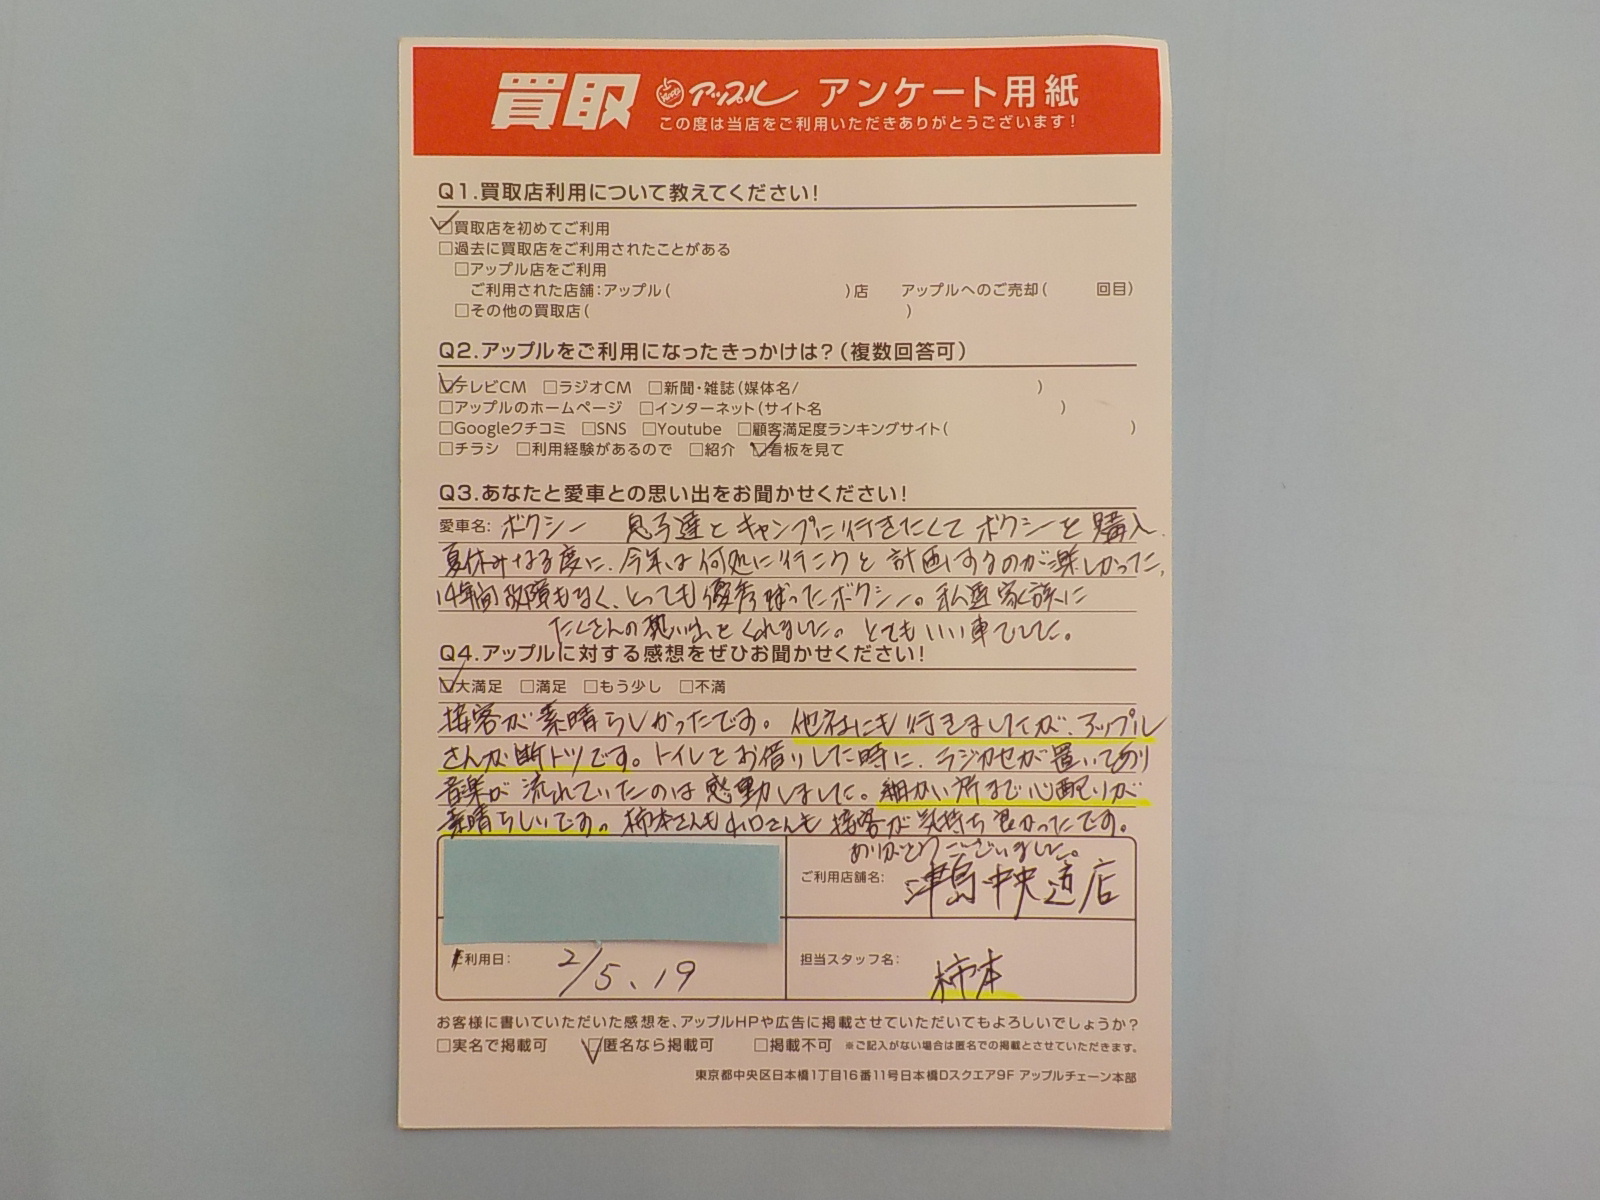 買取 アップル アンケート用紙
この度は当店をご利用いただきありがとうございます!
Q1.買取店利用について教えてください!
□買取店を初めてご利用
□過去に買取店をご利用されたことがある
□アップル店をご利用
ご利用された店舗:アップル( )店 アップルへのご売却( 回目)
□その他の買取店( )
Q2.アップルをご利用になったきっかけは?(複数回答可)
□テレビCM □ラジオCM □新聞・雑誌(媒体名/ )
□アップルのホームページ □インターネット(サイト名 )
□Googleクチコミ □SNS □Youtube □顧客満足度ランキングサイト( )
□チラシ □利用経験があるので □紹介 □看板を見て
Q3.あなたと愛車との思い出をお聞かせください!
愛車名: ボクシー 息子達とキャンプに行きたくてボクシーを購入.
夏休みなる度に、今年は何処に行こうと計画するのが楽しかった、
14年間故障もなく、とっても優秀だったボクシー。私達家族に
たくさんの思い出をくれました。とてもいい車でした。
Q4.アップルに対する感想をぜひお聞かせください!
□大満足 □満足 □もう少し □不満
接客が素晴らしかったです。他社にも行きましたが、アップル
さんが断トツです。トイレをお借りした時に、ラジカセが置いてあり
音楽が流れていたのは感動しました。細かい所まで心配りが
素晴らしいです。柿本さんも さんも接客が気持ち良かったです。
ありがとうございました。
ご利用店舗名: 津島中央道店
ご利用日: 2/5、19
担当スタッフ名: 柿本
お客様に書いていただいた感想を、アップルHPや広告に掲載させていただいてもよろしいでしょうか?
□実名で掲載可 □匿名なら掲載可 □掲載不可 ※ご記入がない場合は匿名での掲載とさせていただきます。
東京都中央区日本橋1丁目16番11号日本橋Dスクエア9F アップルチェーン本部